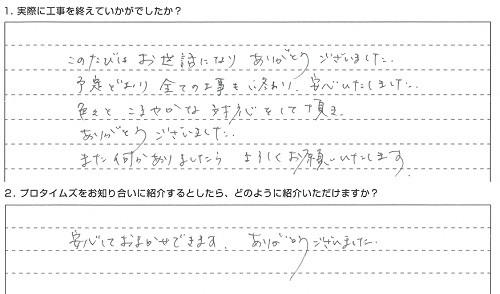 1. 実際に工事を終えていかがでしたか？
このたびは お世話になり ありがとうございました.
予定どおり 全ての工事も 終わり、安心いたしました.
色々と こまやかな 対応をして頂き、
ありがとうございました.
また 何かありましたら よろしくお願いいたします.
2. プロタイムズをお知り合いに紹介するとしたら、どのように紹介いただけますか？
安心しておまかせできます. ありがとうございました.